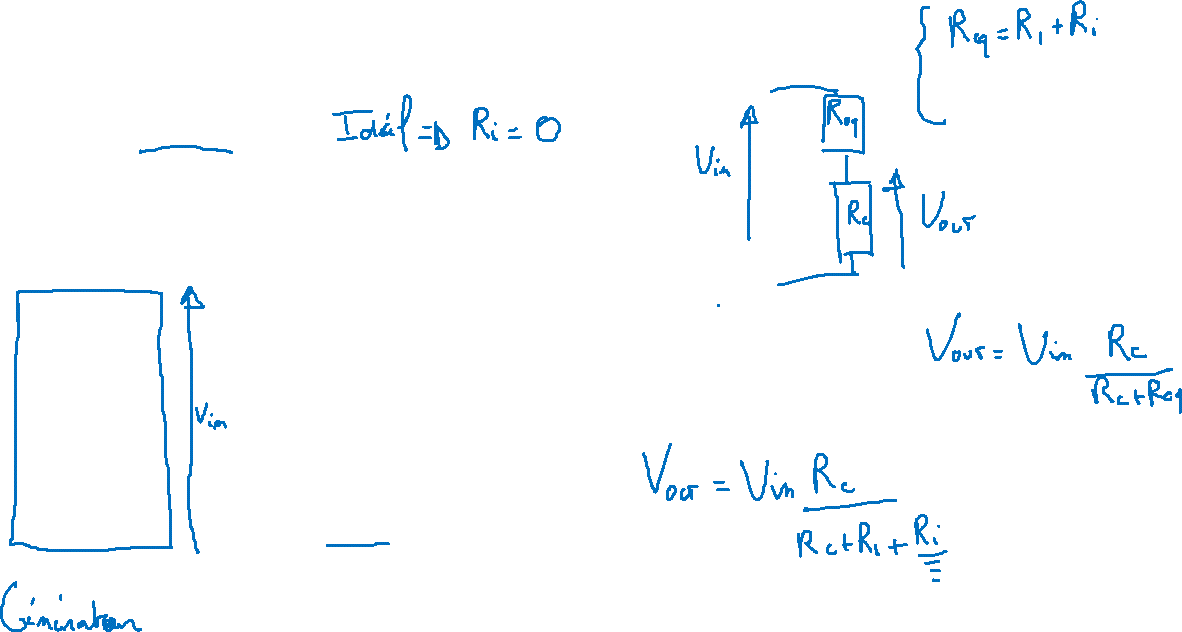 Idéal ⇒ Ri = 0
Req = R1 + Ri
Vin
Req
Rc
Vout
Vin
Vout = Vin Rc / (Rc + Req)
Vout = Vin Rc / (Rc + R1 + Ri)
Générateur